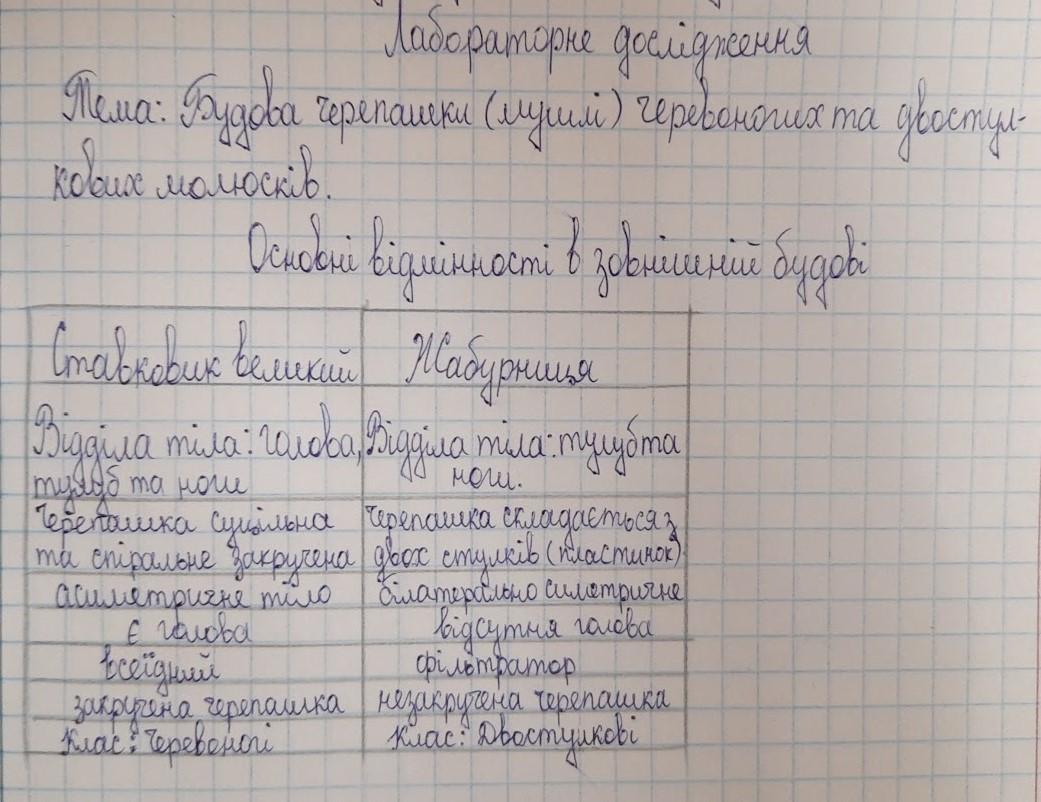 Лабораторне дослідження
Тема: Будова черепашки (мушлі) черевоногих та двостул-
кових молюсків.
Основні відмінності в зовнішній будові
Ставковик великий Жабурниця
Відділа тіла: голова, Відділа тіла: тулуб та
тулуб та ноги ноги.
Черепашка суцільна Черепашка складається з
та спіральне закручена двох стулків (пластинок)
асиметричне тіло білатерально симетричне
Є голова відсутня голова
всеїдний фільтратор
закручена черепашка незакручена черепашка
Клас: Черевоногі Клас: Двостулкові